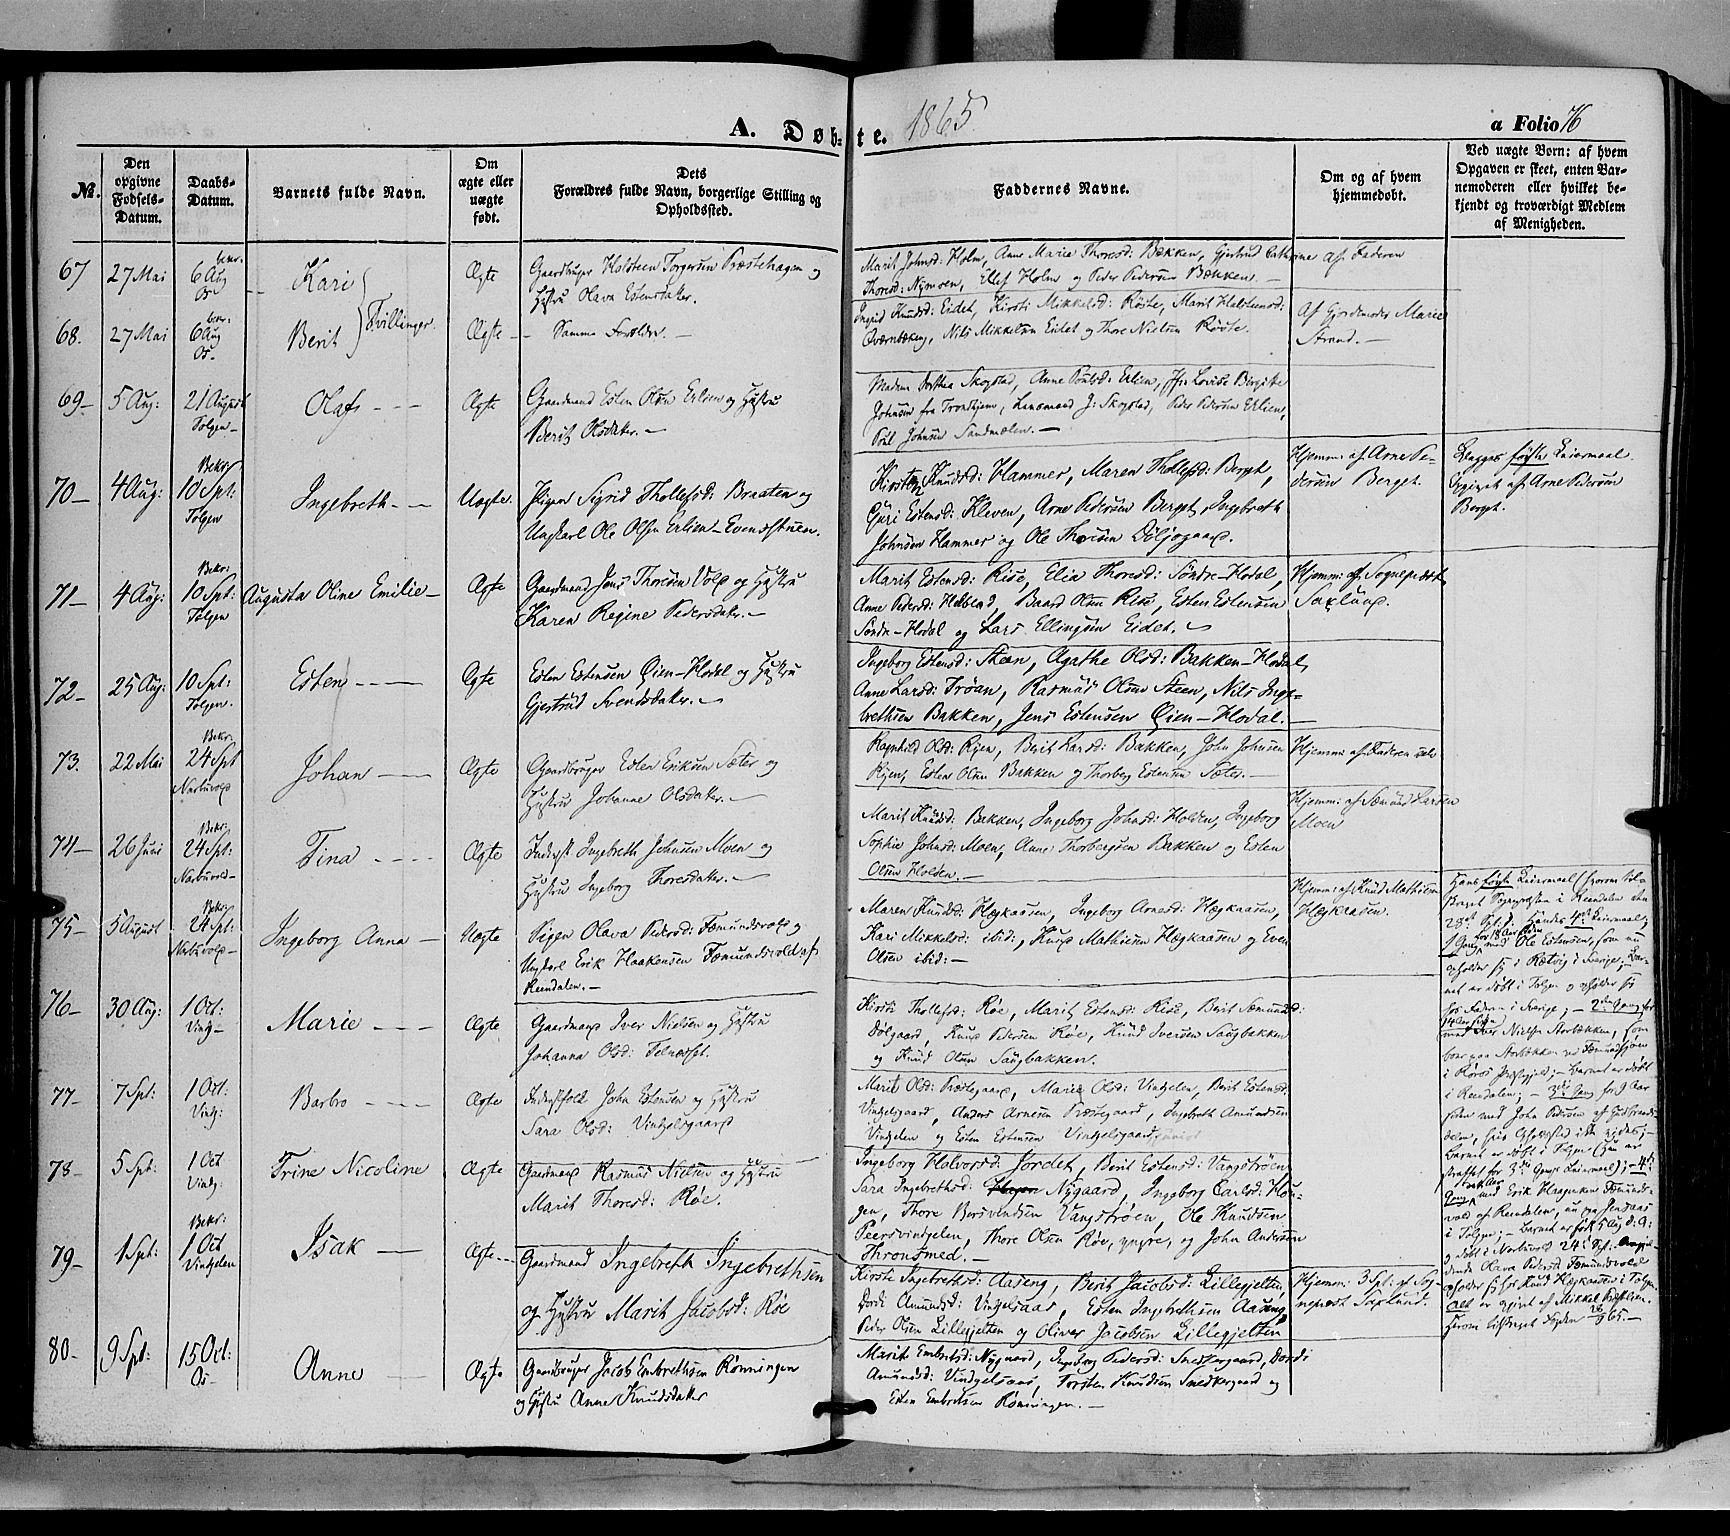 A. Døb-
te. 1865
a Folio 76
№.
Den opgivne Fødsels-Datum.
Daabs-Datum.
Barnets fulde Navn.
Om ægte eller uægte født.
Dets
Forældres fulde Navn, borgerlige Stilling og
Opholdssted.
Faddernes Navne.
Om og af hvem
hjemmedøbt.
Ved uægte Børn: af hvem
Opgaven er skeet, enten Bar-
nemoderen eller hvilket be-
kjendt og troværdigt Medlem
af Menigheden.
67 27 Mai 6 Aug Os Kari Ægte Gaardbruger Holsteen Torgersen Præstehagen og
Hustru Olava Estensdatter.
Marit Johnsd: Holm, Anne Marie Thoresd: Bækken, Gjertrud Cathrine
Thoresd: Nymoen, Ellef Holm og Peder Pedersen Bækken.
af Faderen
Tvillinger
68. 27 Mai 6 Aug Os. Berit Ægte Samme Forældre. —
Ingrid Knudsd: Eidet, Kirsti Mikkelsd: Røste, Marit Halsteensd:
Qværnbækken, Nils Mikkelsen Eidet og Thore Nielsen Røste.
Af Gjordemoder Marie
Strand. —
69 5 Aug: 21 August Tolgen Olaf Ægte Gaardmand Esten Olsen Erlien og Hustru
Berit Olsdatter. —
Madam Dorthea Skogstad, Anne Poulsd: Erlien, Jfr: Lovise Birgitte
Johnsen fra Trondhjem, Lensmand J: Skogstad, Peder Pedersen Erlien,
Poul Johnsen Sandmælen. —
70 4 Aug: Bekr: 10 Spt: Tolgen Ingebreth Uægte. Pigen Sigrid Thollefsd: Braaten og
Ungkarl Ole Olsen Erlien-Evensstuen.
Kirsten Knudsd: Hammer, Maren Thollefsd: Berget,
Guri Estensd: Kleven, Arne Pedersen Berget, Ingebreth
Johnsen Hammer og Ole Thoresen Døljogaard.
Hjemm: af Arne Pe-
dersen Berget.
Begges første Leiermaal.
Opgivet af Arne Pedersen
Berget.
71 4 Aug: Bekr: 10 Spt: Tolgen Augusta Oline Emilie Ægte Gaardmand Jens Thoresen Vold og Hustru
Karen Regine Pedersdatter. —
Marit Estensd: Rise, Elin Thoresd: Søndre-Hodal,
Anne Pedersd: Hælbend, Baard Olsen Rise, Esten Estensen
Søndre-Hodal og Lars Ellingsen Eidet.
Hjemm: af Sognepræst
Saxlund.
72 25 Aug: 10 Spt: Tolgen. Esten Ægte Esten Estensen Øien-Hodal og Hustru
Gjertrud Svendsdatter.
Ingeborg Estensd: Steen, Agathe Olsd: Bakken-Hodal,
Anne Larsd: Trøan, Rasmus Olsen Steen, Nils Inge-
brethsen Bakken, Jens Estensen Øien-Hodal.
73. 22 Mai Bekr: 24 Spt Narbuvold Johan Ægte Gaardbruger Esten Eriksen Sæter og
Hustru Johanne Olsdatter.
Ragnhild Olsd: Ryen, Berit Larsd: Bakken, John Johnsen
Ryen, Esten Olsen Bakken og Thorberg Estensen Sæter. —
Hjemm: af Faderen
74 26 Juni Bekr: 24 Spt: Narbuvold Tina Ægte Inderst Ingebreth Johnsen Moen og
Hustru Ingeborg Thoresdatter.
Marit Knudsd: Bakken, Ingeborg Johnsd: Holden, Ingeborg
Sophie Johnsd: Moen, Anne Thorbergsen Bakken og Esten
Olsen Holden. —
Hjemm: af Sæmund Larsen
Moen
75 5 August Bekr: 24 Spt: Narbuvold Ingeborg Anna Uægte Pigen Olava Pedersd: Fæmundsvold og
Ungkarl Erik Haakensen Fæmundsvold af
Rendalen. —
Maren Knudsd: Hægkaasen, Ingeborg Arnesd: Hægkaasen,
Kari Mikkelsd: ibid:, Knud Mathisen Hægkaasen og Even
Olsen ibid: —
Hjemm: af Knud Mathisen
Hægkaasen.
Hans første Leiermaal
Sognepræsten i Rendalen
Spt.); hendes 4de Leiermaal;
1 Gang med Ole Estensen, som nu
opholder sig i Rætvig i Sverige; Bar-
net er døbt i Tolgen og opholder sig
hos Faderen i Sverige; — 2den Gang for
14 Aar siden
med Iver Nielsen Storbækken, som
boer paa Storbækken ved Fæmundsjøen
i Røros Præstegjeld; Barnet er døbt
i Rendalen; — 3die Gang for 9 Aar
siden med John Pedersen af Gudbrands-
dalen, hvis Opholdssted ikke vides;
Barnet er døbt i Tolgen (hun er
straffet for 3die Gangs Leiermaal); — 4de
Gang med Erik Haagensen Fæmunds-
vold af Rendalen, nu paa Jensaas
i Tolgen; — Barnet er født 5 Aug: d: A:
og døbt i Narbuvold 24 Spt.
Olava Pedersd Fæmundsvold
opholder sig hos Knud Hægkaasen i Tolgen.
Alt er opgivet af Mikkel
76 30 Aug: 1 Oct: Ving Marie Ægte Gaardmand Iver Nielsen og Hustru
Johanna Olsd: Telneset.
Kirsti Thollefsd: Røe, Marit Estensd: Rise, Berit Sæmundsd:
Dølgaard, Knud Pedersen Røe, Knud Iversen Saugbakken
og Knud Olsen Saugbakken.
77 7 Spt: 1 Oct: Ving: Barbro Ægte Inderstfolk John Estensen og Hustru
Sara Olsd: Vingelsgaard
Marit Olsd: Præstegaard, Marie Olsd: Vingelen, Berit Estensd:
Vingelsgaard, Anders Arnesen Præstegaard, Ingebreth Amundsen
Vingelen og Esten Estensen Vingelsgaard
78 5 Spt: 1 Oct Ving: Trine Nicoline Ægte Gaardmand Rasmus Nielsen og Hustru
Marit Thoresd: Røe.
Ingeborg Halvorsd: Jordet, Berit Estensd: Vangstrøen,
Sara Ingebrethsd: Nygaard, Ingeborg Carlsd: Hau-
gen, Thore Bersvendsen Vangstrøen, Ole Knudsen
Peersvingelen, Thore Olsen Røe, yngre, og John Andersen
Thronsmed. —
79 1 Spt: Bekr: 1 Oct Vingelen Isak Ægte Gaardmand Ingebreth Ingebrethsen
og Hustru Marit Jacobsd: Røe
Kirsti Ingebrethsd: Aaseng, Berit Jacobsd: Lillegjelten,
Dordi Amundsd: Vingelsaas, Esten Ingebrethsen Aaseng,
Peder Olsen Lillegjelten og Oliver Jacobsen Lillegjelten
Hjemm: 3 Spt. af Sog-
nepræst Saxlund.
80 9 Spt: 15 Oct: Os Anne Ægte Gaardbruger Jacob Embrethsen Rønningen
og Hustru Anne Knudsdatter
Marit Embretsd: Nygaard, Ingeborg Pedersd: Snedkergaard, Dordi
Amundsd: Vingelsaas, Torsten Knudsen Snedkergaard og
Esten Embretsen Rønningen. —